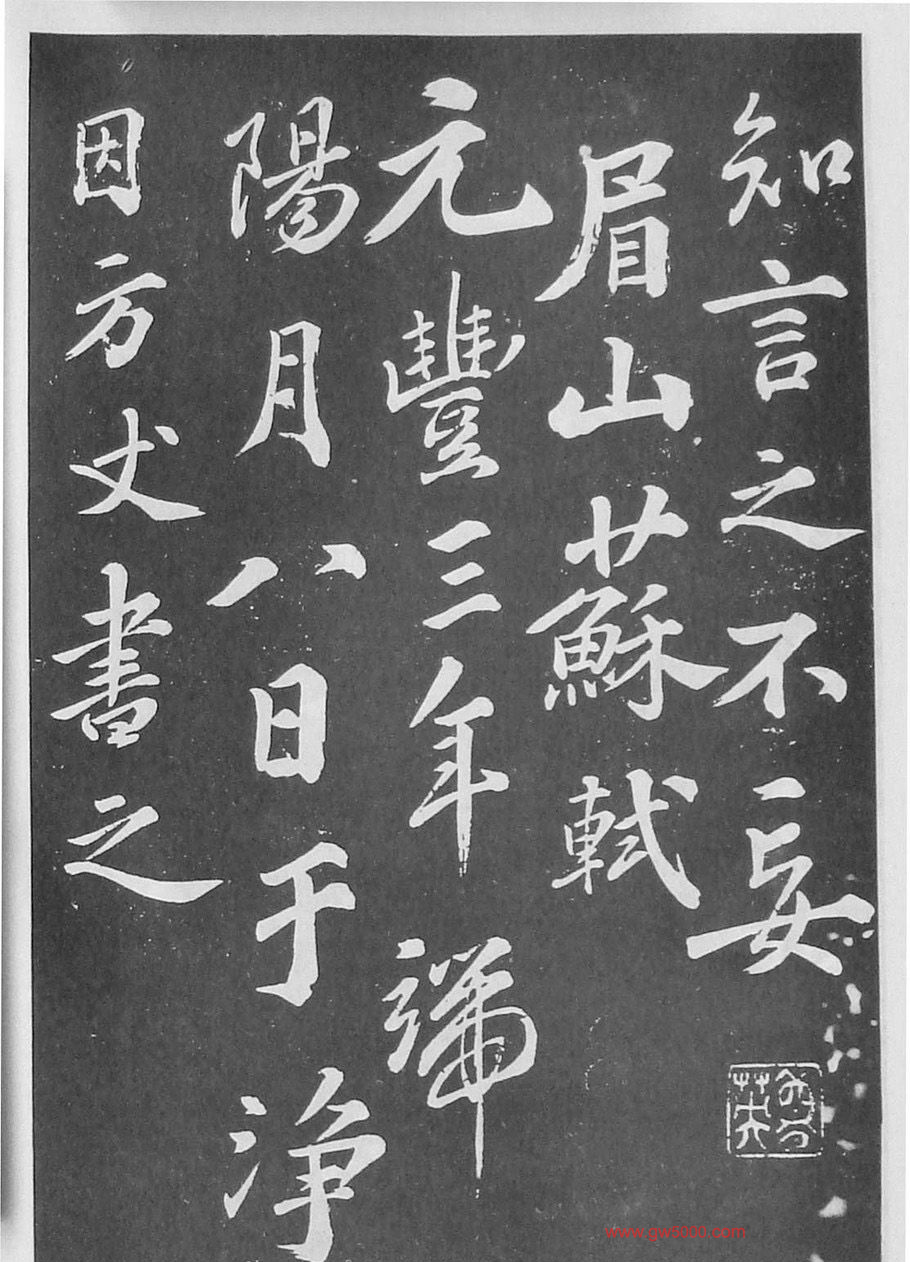 知言之不妄
眉山蘇軾
元豐三年端
陽月八日于淨
因方丈書之
www.gw5300.com